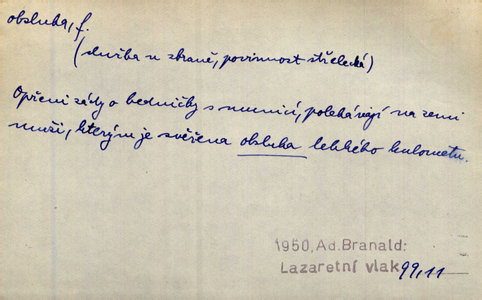 obsluha, f.
(služba u zbraně, povinnost střelecká)
Opřeni zády o bedničky s municí, polehávají na zemi
muži, kterým je svěřena obsluha lehkého kulometu.
1950, Ad. Branald:
Lazaretní vlak 99, 11